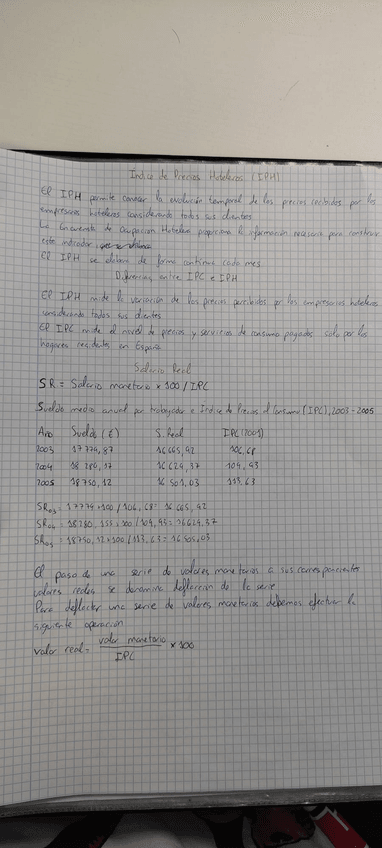 Indice de Precios Hoteleros (IPH)
El IPH permite conocer la evolución temporal de los precios recibidos por los
empresarios hoteleros considerando todos sus clientes
La Encuesta de Ocupacion Hotelera proporciona la información necesaria para construir
este indicador
El IPH se elabora de forma continua cada mes
Diferencias entre IPC e IPH
El IPH mide la variación de los precios percibidos por los empresarios hoteleros
considerando todos sus clientes
El IPC mide el nivel de precios y servicios de consumo pagados solo por los
hogares residentes en España
Salario Real
SR = Salario monetario x 100 / IPC
Sueldo medio anual por trabajador e Indice de Precios al Consumo (IPC), 2003-2005
Año Sueldo (€) S. Real IPC (2001)
2003 17 774, 87 16 665, 92 106, 68
2004 18 280, 17 16 624, 37 104, 93
2005 18 750, 12 16 501, 03 113, 63
SR03 = 17774 x 100 / 106, 68 = 16 665, 92
SR04 = 18250, 155 x 100 / 104, 93 = 16624, 37
SR05 = 18750, 12 x 100 / 113, 63 = 16 505, 03
El paso de una serie de valores monetarios a sus correspondientes
valores reales se denomina deflacción de la serie
Para deflactar una serie de valores monetarios debemos efectuar la
siguiente operación
valor real = valor monetario / IPC x 100